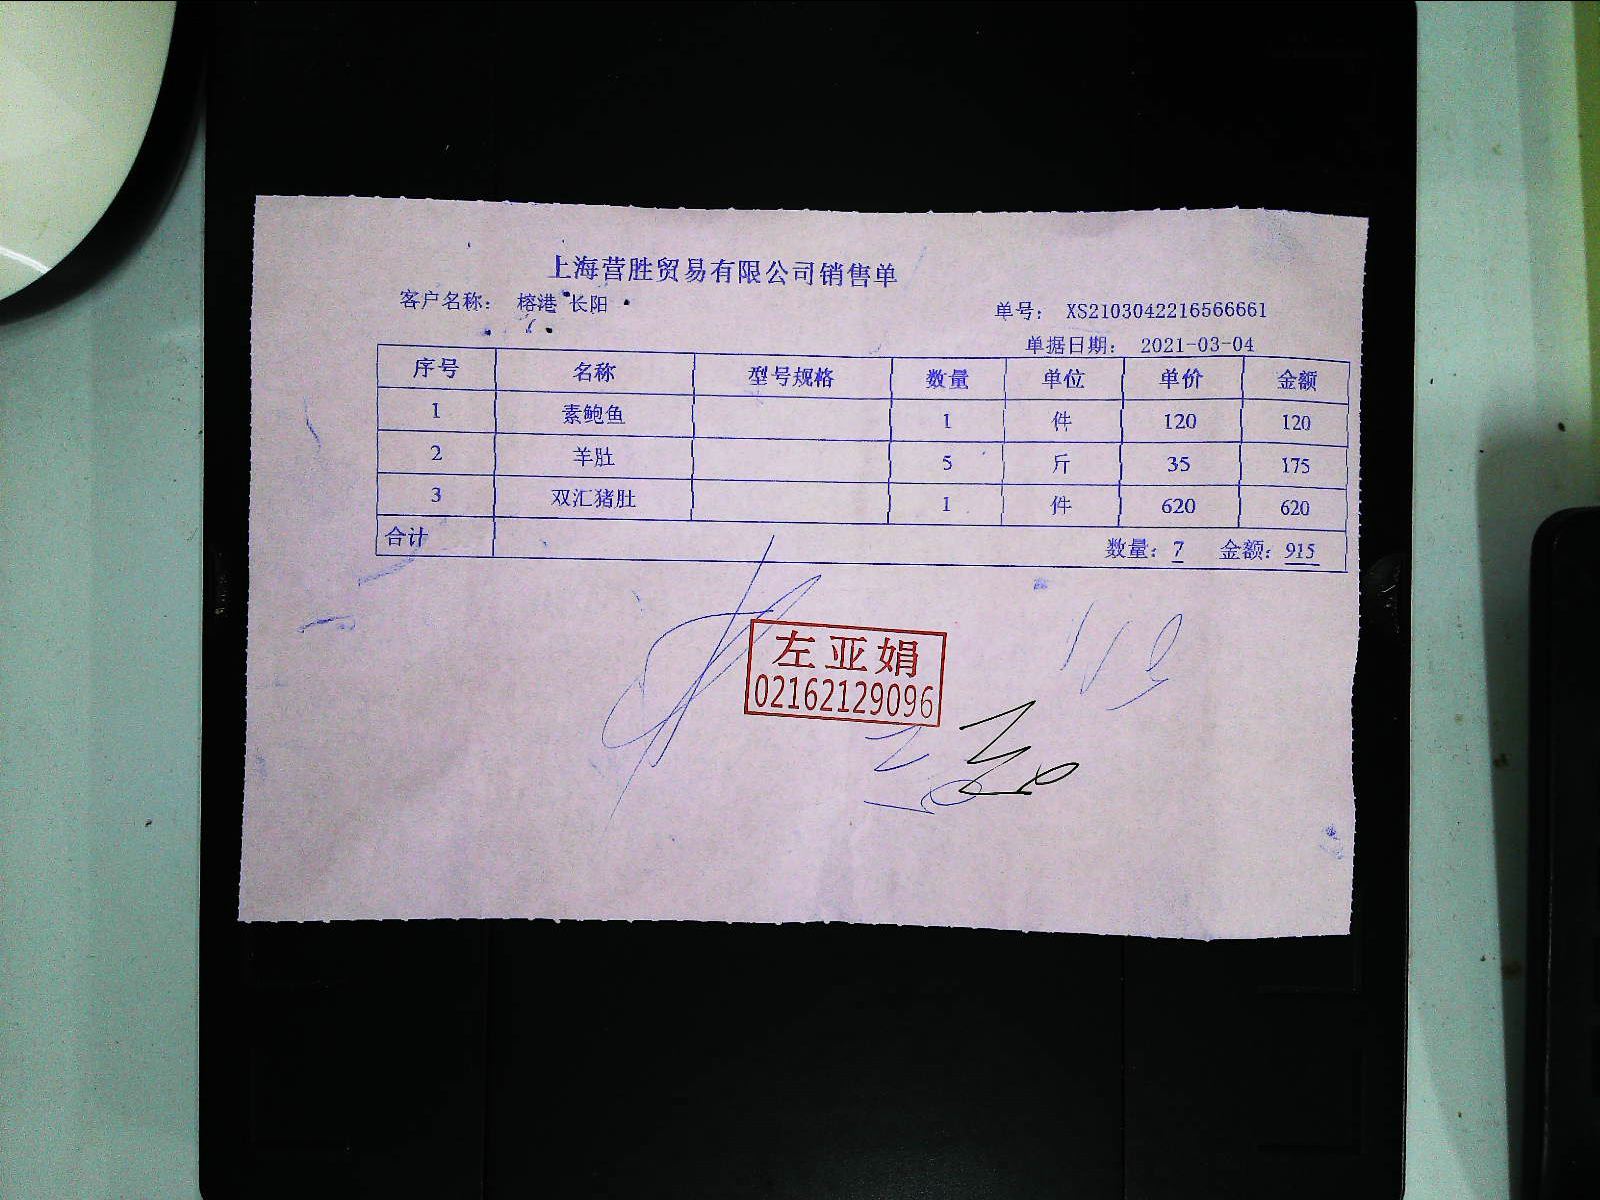 上海营胜贸易有限公司销售单
客户名称： 榕港 长阳
单号： XS2103042216566661
单据日期： 2021-03-04
序号 名称 型号规格 数量 单位 单价 金额
1 素鲍鱼 1 件 120 120
2 羊肚 5 斤 35 175
3 双汇猪肚 1 件 620 620
合计 数量：7 金额：915
左亚娟
02162129096